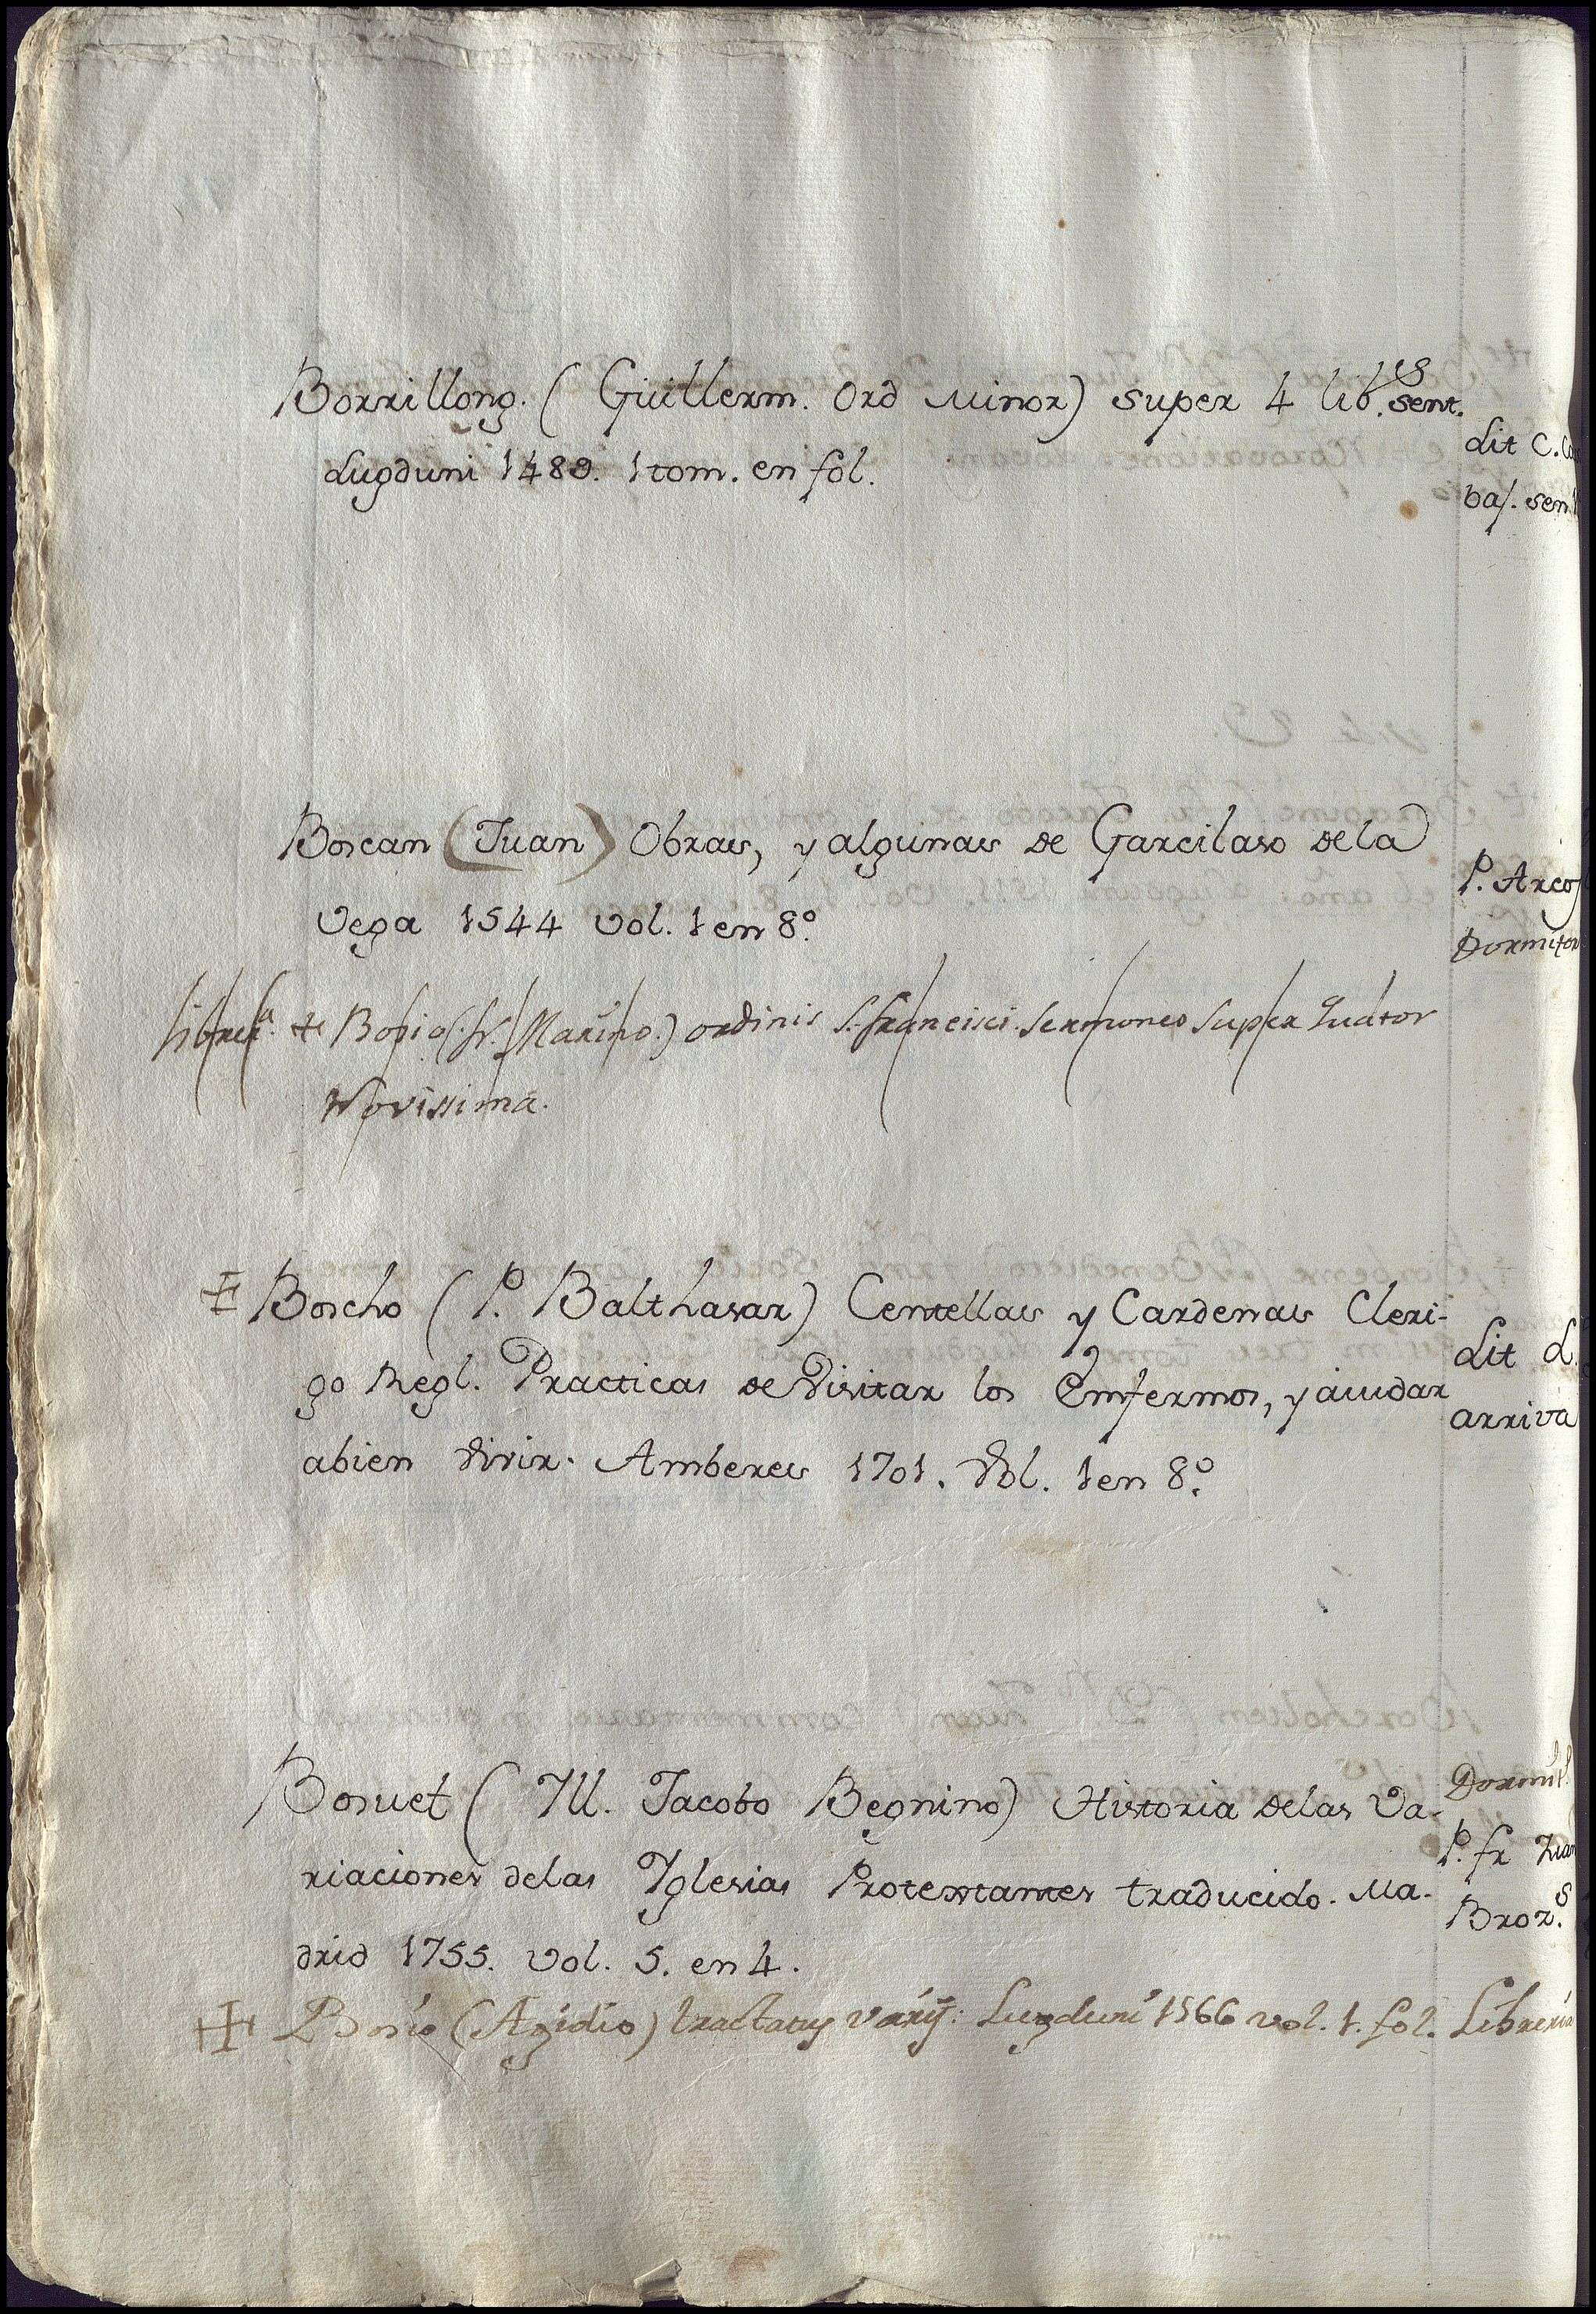 Borrillong. (Guillerm. Ord Minor) super 4 lib.s sent.
Lugduni 1489. 1 tom. en fol.
Lit C.
baj. sen
Boscan (Juan) Obras, y algunas de Garcilaso dela
Vega 1544 vol. 1 en 8.º
P. Arco
Dormitor
Librer.ª + Bosio (Fr. Marino.) ordinis S. Francisci. Sermones super Quator
Novissima.
+ Boscho (P. Balthasar) Centellas y Cardenas Cleri-
go Regl. Practicas de Visitar los Enfermos, y aiudar
abien vivir. Amberes 1701. Vol. 1 en 8.º
Lit L.
arriva
Bosuet (Ill. Jacobo Begnino) Historia delas Va-
riaciones delas Yglesias Protestantes traducido. Ma-
drid 1755. vol. 5. en 4.
Dormit.
P. fr Juan
Broz.s
+ Bosio (Agidio) tractatus varij: Lugduni 1566 vol. 1. fol. Libreria